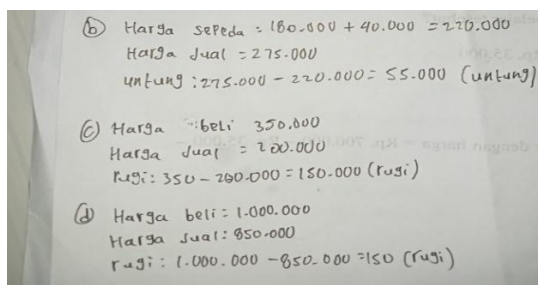 (b) Harga sepeda = 180.000 + 40.000 = 220.000
Harga Jual = 275.000
untung : 275.000 - 220.000 = 55.000 (untung)
(c) Harga beli 350.000
Harga Jual = 200.000
rugi : 350 - 200.000 = 150.000 (rugi)
(d) Harga beli : 1.000.000
Harga Jual : 850.000
rugi : 1.000.000 - 850.000 = 150 (rugi)